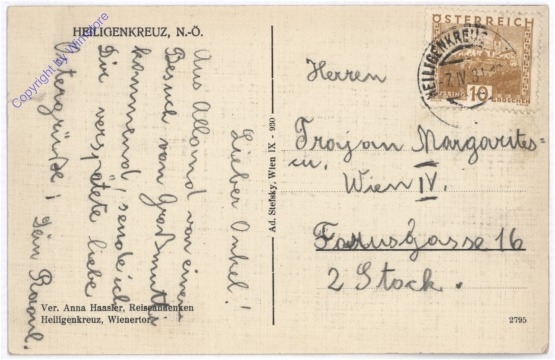 HEILIGENKREUZ, N.-Ö.
Lieber Onkel!
Aus Alland von einem
Besuch von Großmutti
kommend, sende ich
Dir verspätete liebe
Ostergrüße! Dein Raoul.
Ver. Anna Haasler, Reiseandenken
Heiligenkreuz, Wienertor
Ad. Stefsky, Wien IX - 930
ÖSTERREICH
10 GROSCHEN
HEILIGENKREUZ
Herren
Trajan Margarites-
in.
Wien IV.
Favusgasse 16
2 Stock.
2795
Copyright by WinStore